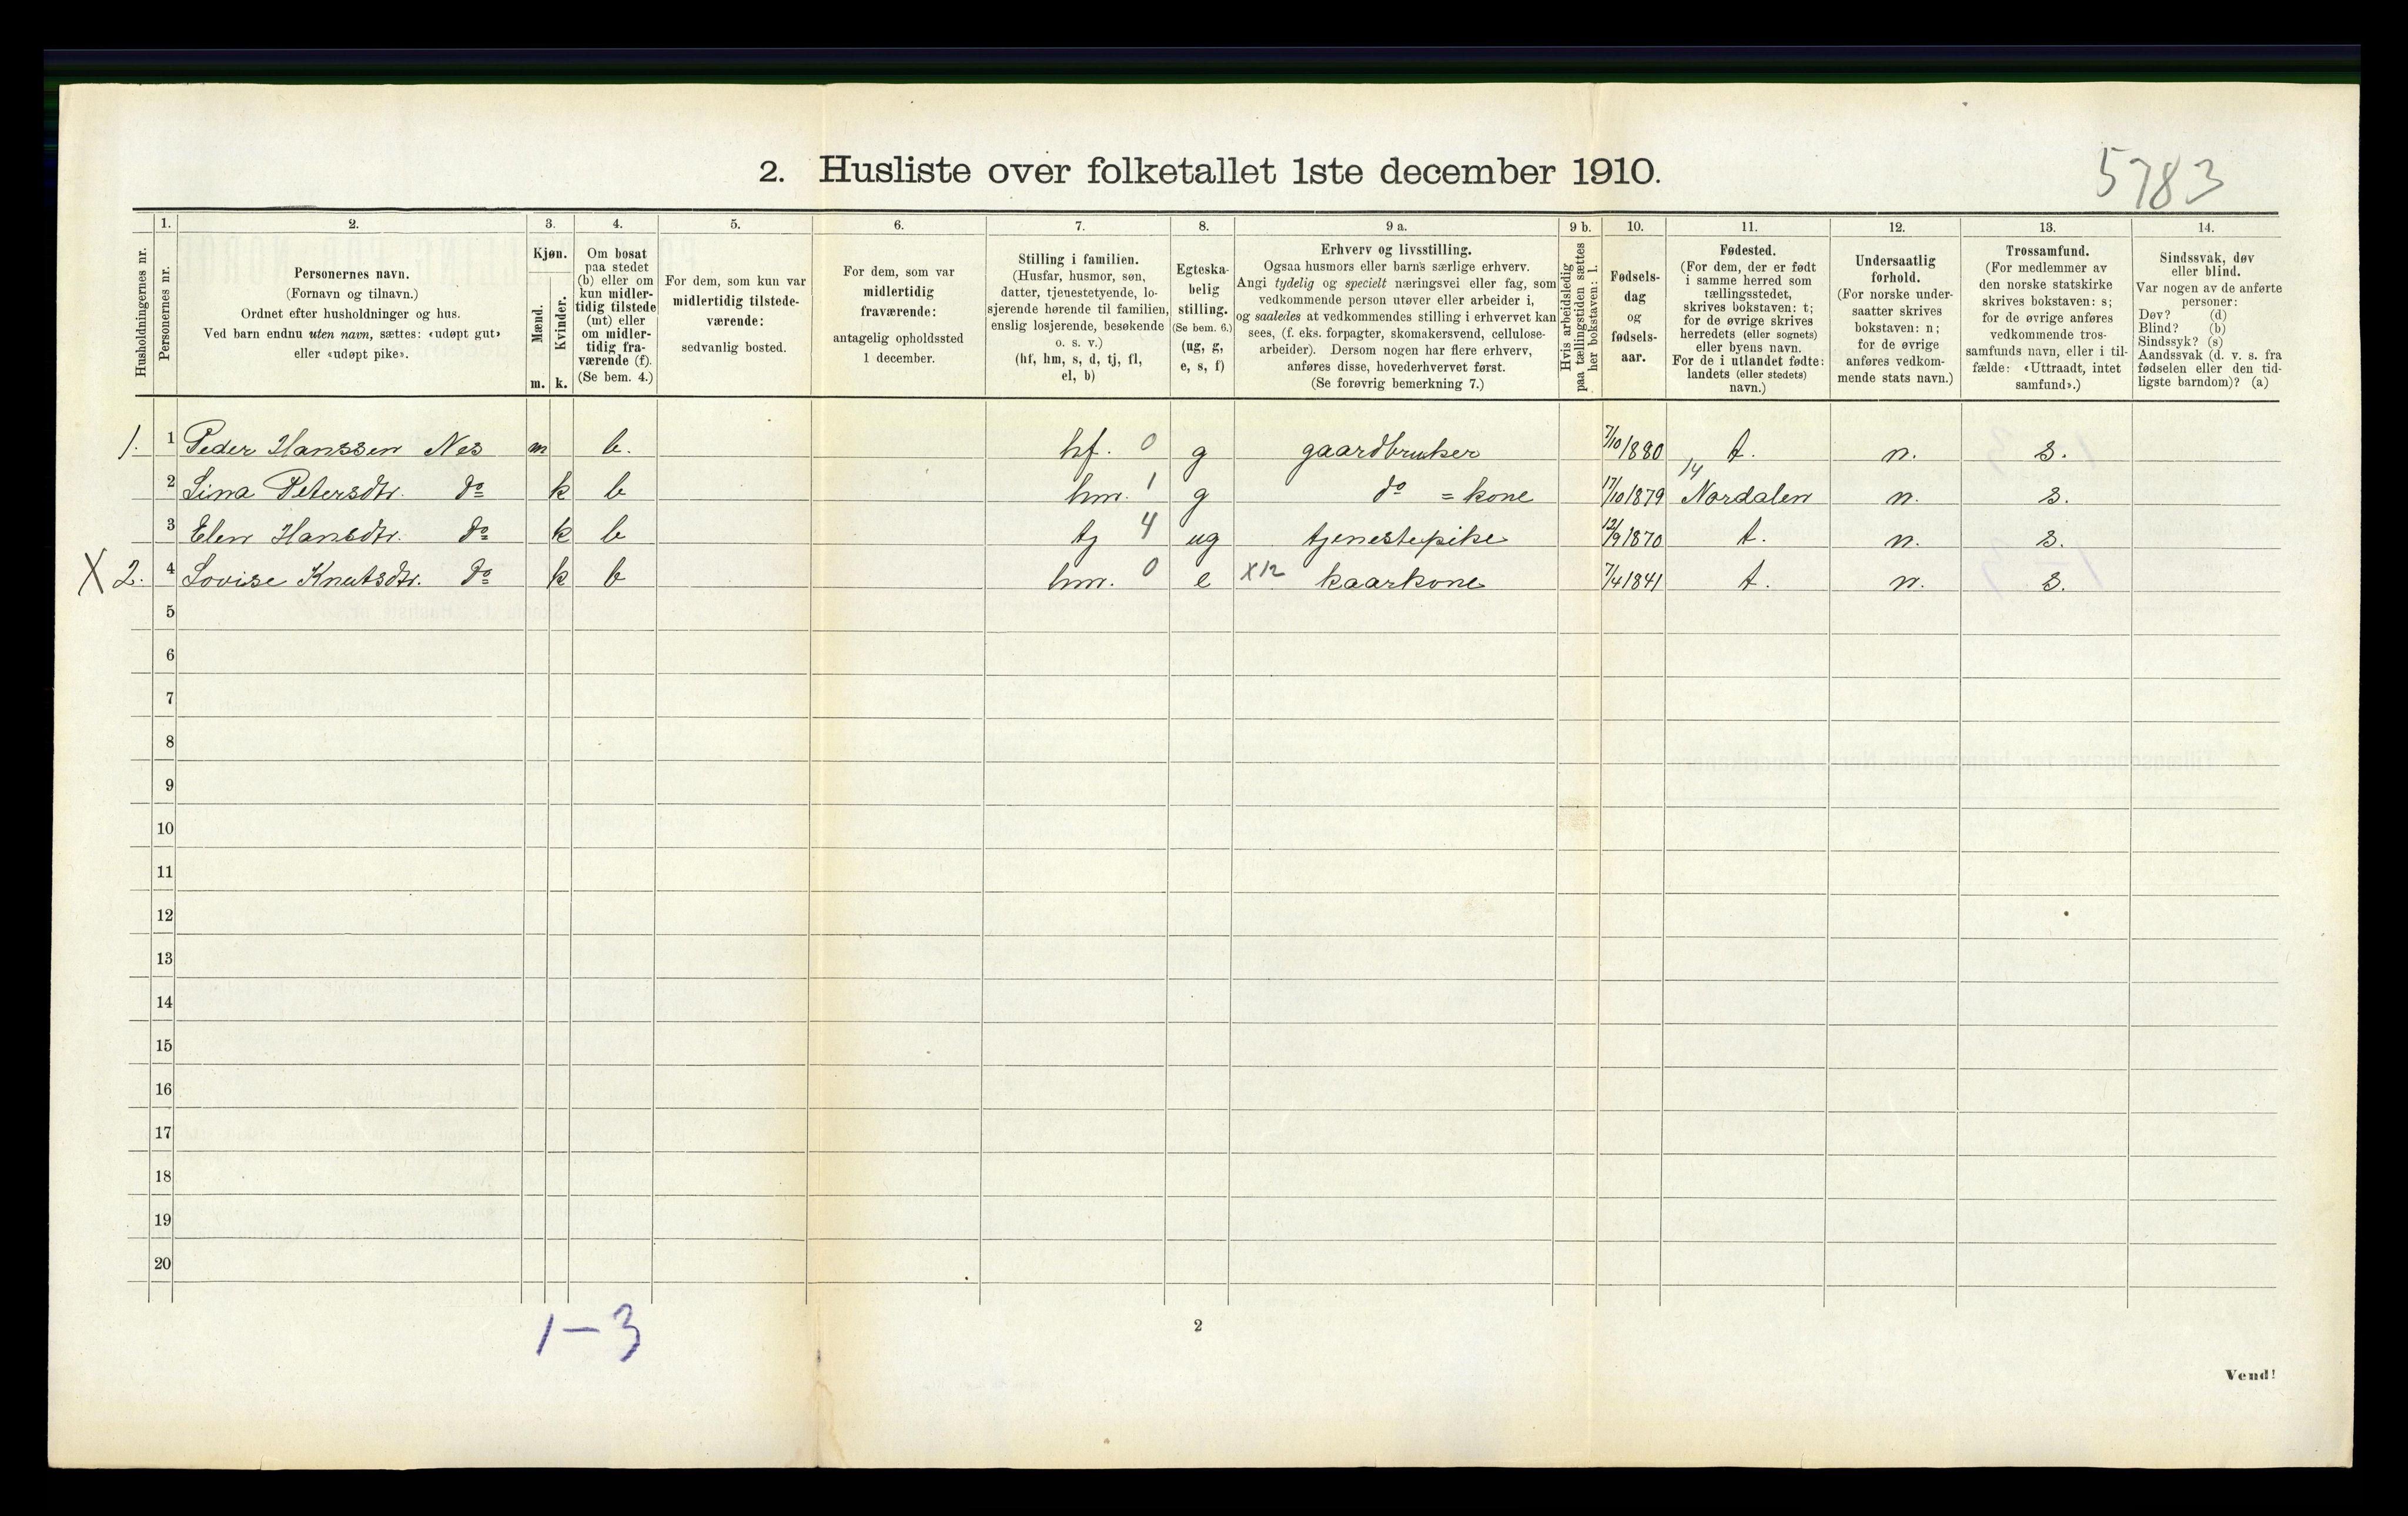 2. Husliste over folketallet 1ste december 1910.
5783
Husholdningernes nr.
1. Personernes nr.
2. Personernes navn.
(Fornavn og tilnavn.)
Ordnet efter husholdninger og hus.
Ved barn endnu uten navn, sættes: «udøpt gut»
eller «udøpt pike».
3. Kjøn.
Mænd. m.
Kvinder. k.
4. Om bosat
paa stedet
(b) eller om
kun midler-
tidig tilstede
(mt) eller
om midler-
tidig fra-
værende (f).
(Se bem. 4.)
5. For dem, som kun var
midlertidig tilstede-
værende:
sedvanlig bosted.
6. For dem, som var
midlertidig
fraværende:
antagelig opholdssted
1 december.
7. Stilling i familien.
(Husfar, husmor, søn,
datter, tjenestetyende, lo-
sjerende hørende til familien,
enslig losjerende, besøkende
o. s. v.)
(hf, hm, s, d, tj, fl,
el, b)
8. Egteska-
belig
stilling.
(Se bem. 6.)
(ug, g,
e, s, f)
9 a. Erhverv og livsstilling.
Ogsaa husmors eller barns særlige erhverv.
Angi tydelig og specielt næringsvei eller fag, som
vedkommende person utøver eller arbeider i,
og saaledes at vedkommendes stilling i erhvervet kan
sees, (f. eks. forpagter, skomakersvend, cellulose-
arbeider). Dersom nogen har flere erhverv,
anføres disse, hovederhvervet først.
(Se forøvrig bemerkning 7.)
9 b. Hvis arbeidsledig
paa tællingstiden sættes
her bokstaven: l.
10. Fødsels-
dag
og
fødsels-
aar.
11. Fødested.
(For dem, der er født
i samme herred som
tællingsstedet,
skrives bokstaven: t;
for de øvrige skrives
herredets (eller sognets)
eller byens navn.
For de i utlandet fødte:
landets (eller stedets)
navn.)
12. Undersaatlig
forhold.
(For norske under-
saatter skrives
bokstaven: n;
for de øvrige
anføres vedkom-
mende stats navn.)
13. Trossamfund.
(For medlemmer av
den norske statskirke
skrives bokstaven: s;
for de øvrige anføres
vedkommende tros-
samfunds navn, eller i til-
fælde: «Uttraadt, intet
samfund».)
14. Sindssvak, døv
eller blind.
Var nogen av de anførte
personer:
Døv? (d)
Blind? (b)
Sindssyk? (s)
Aandssvak (d. v. s. fra
fødselen eller den tid-
ligste barndom)? (a)
1. 1 Peder Hanssen Nes m b. hf. 0 g gaardbruker 7/10 1880 t. n. s.
2 Lina Petersdtr. do k b hm. 1 g do = kone 17/10 1879 14 Nordalen n. s.
3 Elen Hansdtr. do k b tj 4 ug tjenestepike 12/9 1870 t. n. s.
X 2. 4 Lovise Knutsdtr. do k b hm. 0 e X12 kaarkone 7/4 1841 t. n. s.
5
6
7
8
9
10
11
12
13
14
15
16
17
18
19
20
1-3
2
Vend!